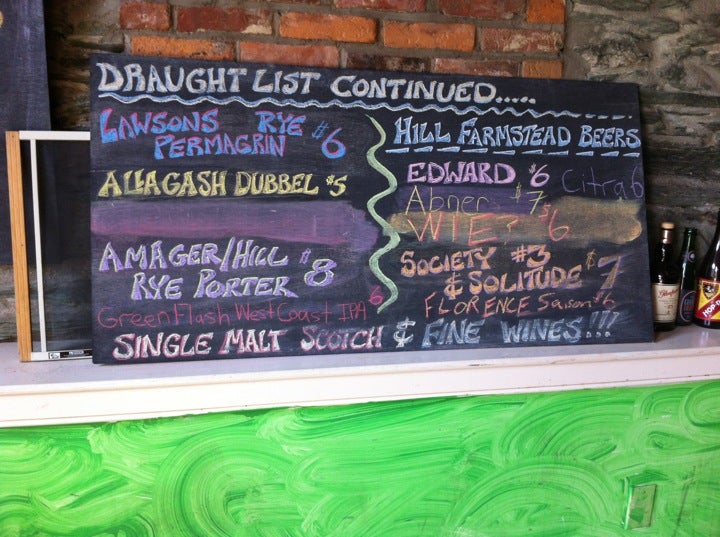 DRAUGHT LIST CONTINUED.....
LAWSONS RYE $6
PERMAGRIN
ALLAGASH DUBBEL $5
AMAGER/HILL $8
RYE PORTER
Green Flash West Coast IPA 6
HILL FARMSTEAD BEERS
EDWARD $6 Citra 6
Abner $7
WIE? $6
SOCIETY #3
& SOLITUDE $7
FLORENCE Saison $6
SINGLE MALT SCOTCH & FINE WINES!!!